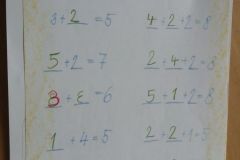 3+2=5
4+2+2=8
5+2=7
2+4+2=8
3+ε=6
5+1+2=8
1+4=5
2+2+1=5